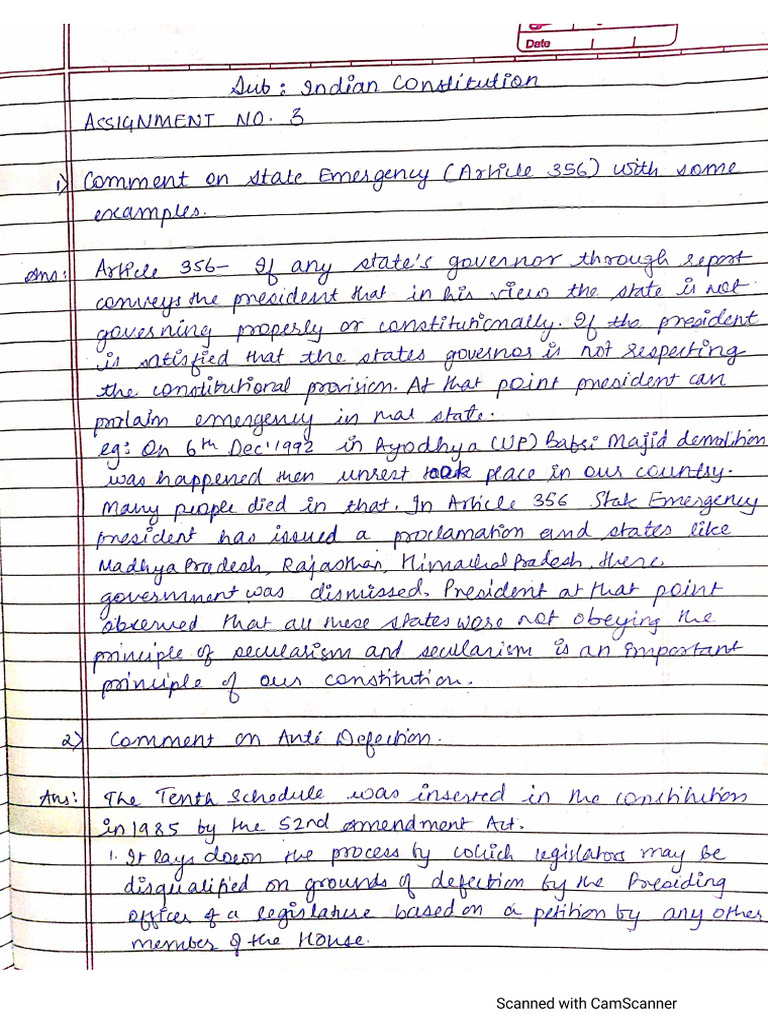 Date
Sub: Indian Constitution
ASSIGNMENT NO. 3
1) Comment on State Emergency (Article 356) with some
examples.
Ans: Article 356- If any state's governor through report
conveys the president that in his view the state is not
governing properly or constitutionally. If the president
is satisfied that the states governor is not respecting
the constitutional provision. At that point president can
proclaim emergency in that state.
eg: On 6th Dec'1992 in Ayodhya (UP) Babri Majid demolition
was happened then unrest took place in our country.
Many people died in that. In Article 356 State Emergency
president has issued a proclamation and states like
Madhya Pradesh, Rajasthan, Himachal Pradesh, there
government was dismissed. President at that point
observed that all these states were not obeying the
principle of secularism and secularism is an important
principle of our constitution.
2) Comment on Anti Defection.
Ans: The Tenth Schedule was inserted in the constitution
in 1985 by the 52nd Amendment Act.
1. It lays down the process by which legislators may be
disqualified on grounds of defection by the Presiding
officer of a legislature based on a petition by any other
member of the House.
Scanned with CamScanner